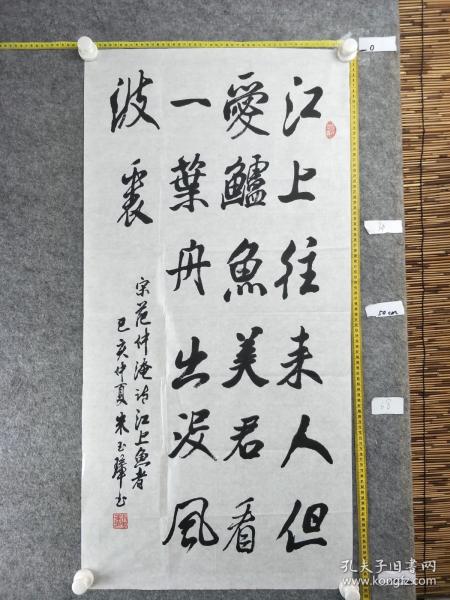 江上往来人但
愛鱸魚美君看
一葉舟出没風
波裏
宋范仲淹诗江上魚者
己亥仲夏朱玉璋书
0
50cm
孔夫子旧书网